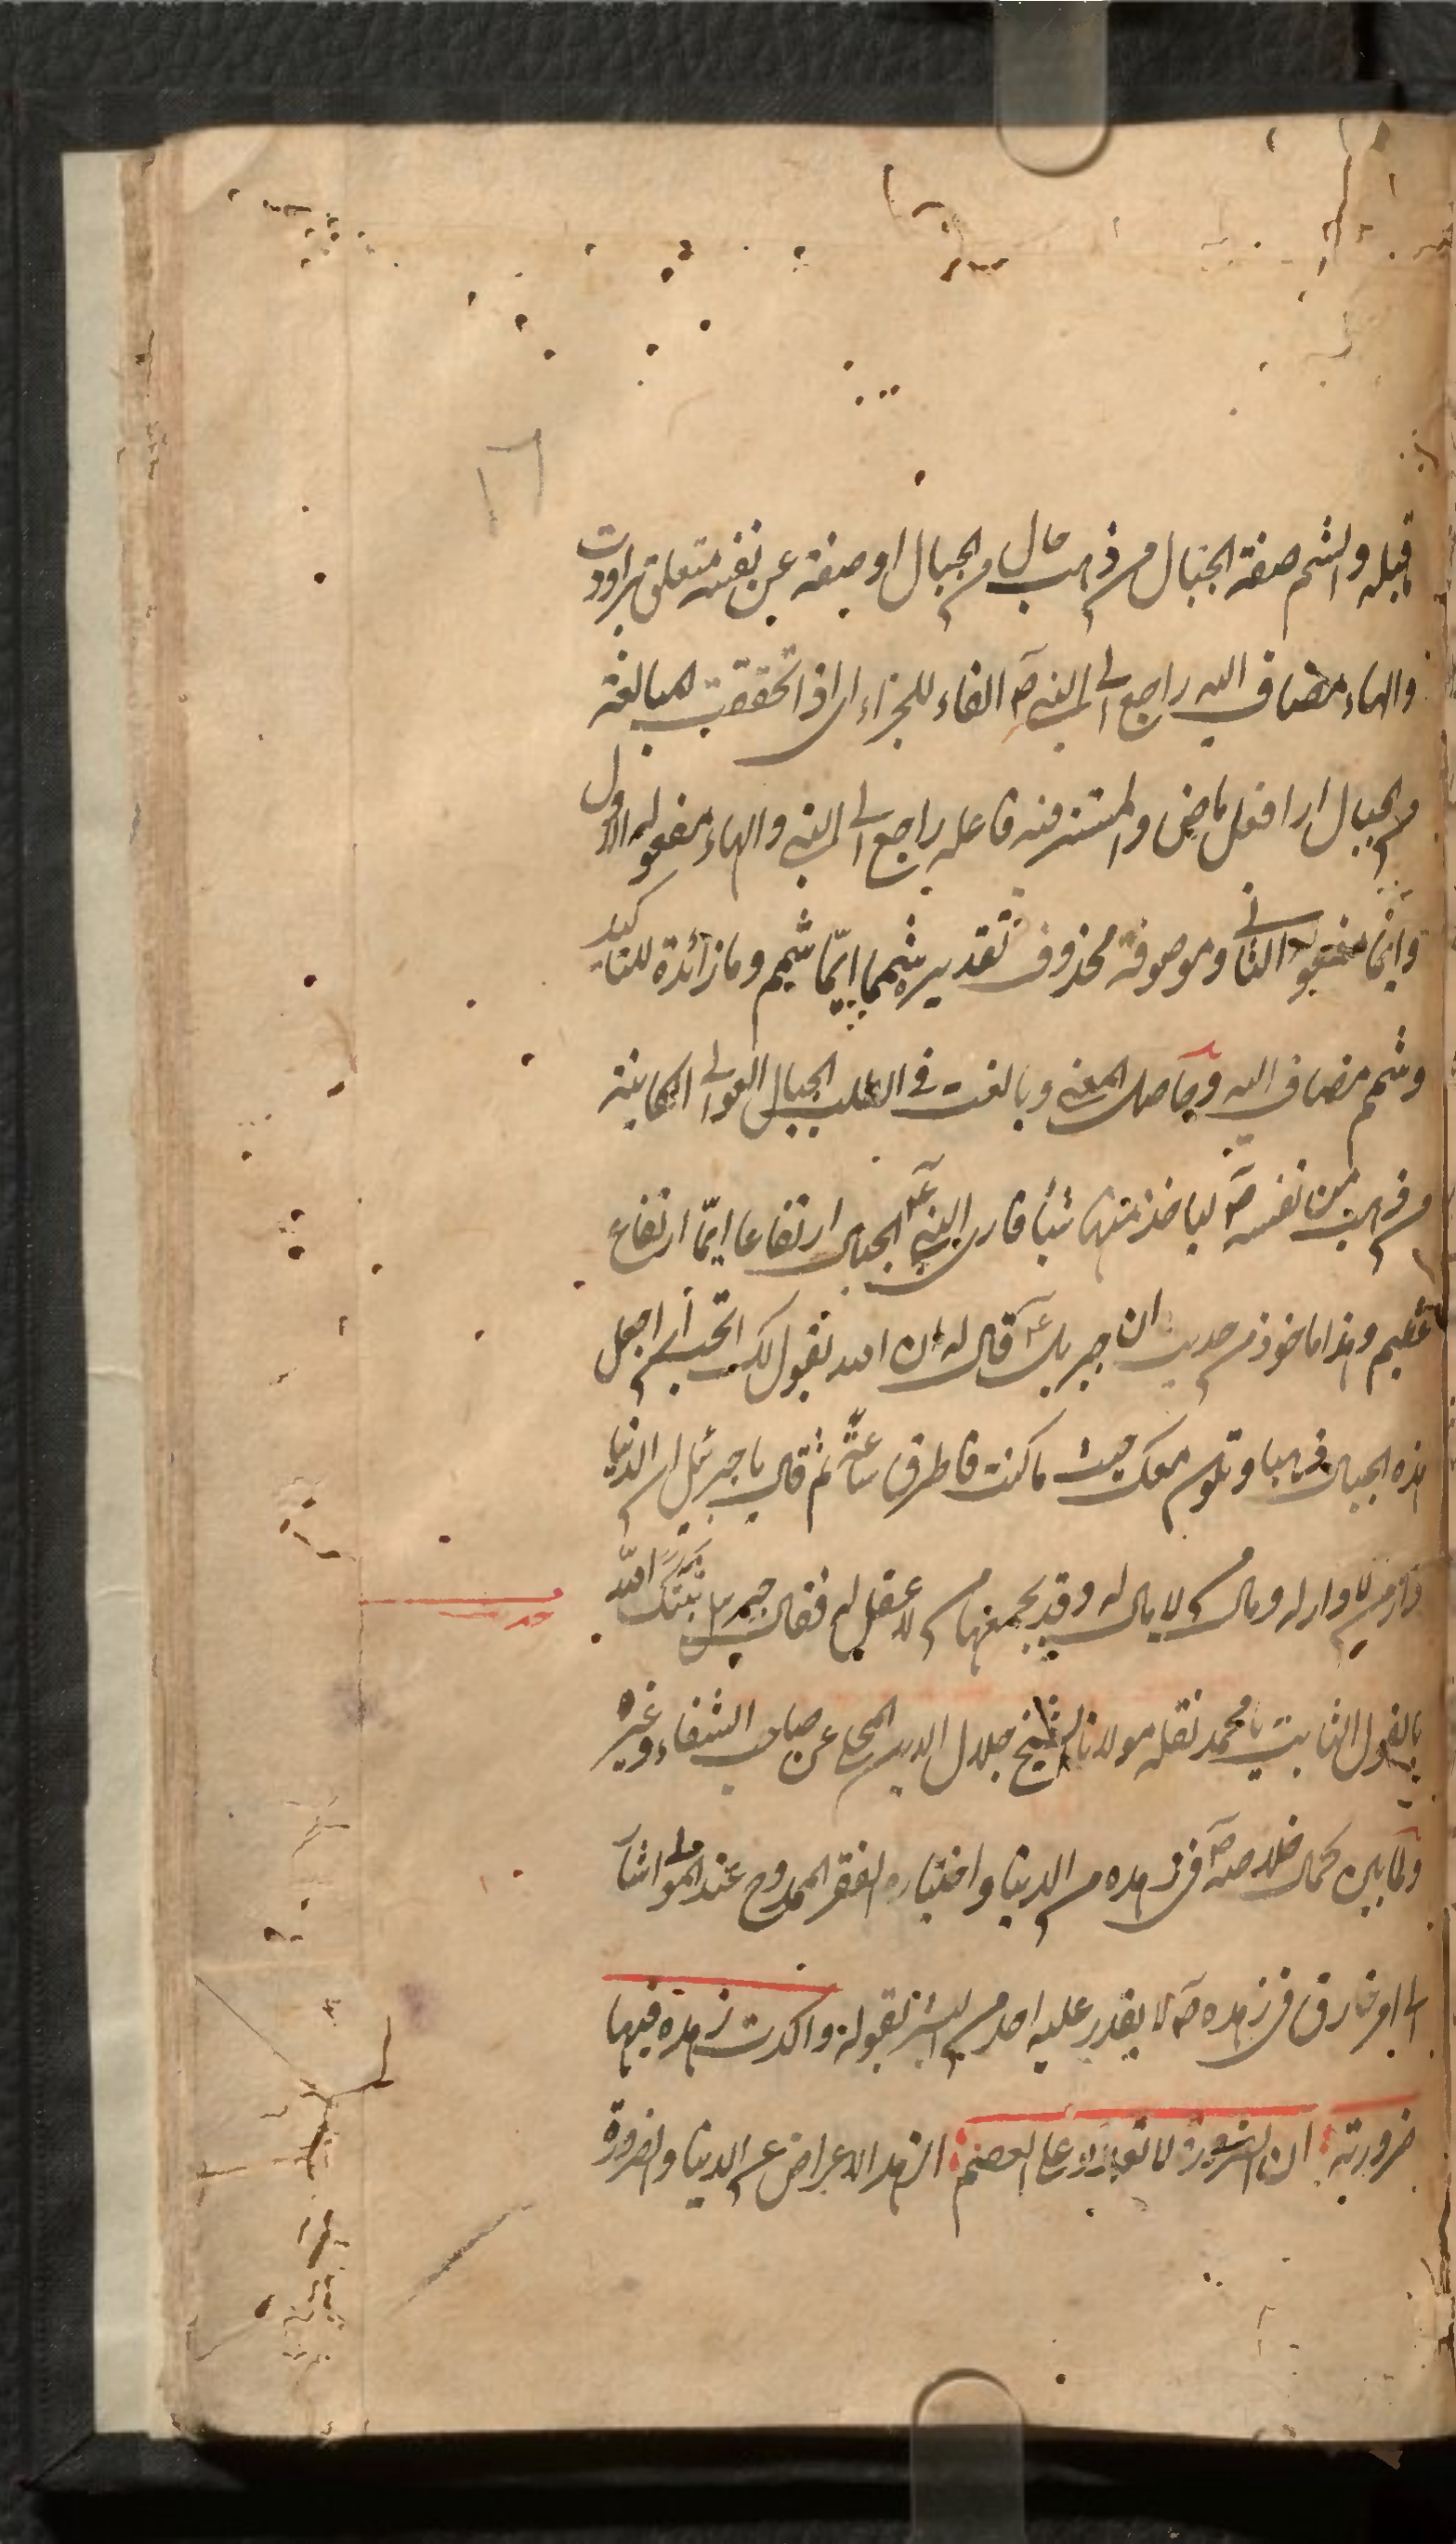 ١٦
قبله والشم صفة الجبال من ذهب حال من الجبال او صفة عن نفسه متعلق براودت
والهاء مضاف اليه راجع الى النبي صم الفاء للجزاء اى اذا تحققت المبالغة
من الجبال ارا فعل ماضى والمستتر فيه فاعله راجع الى النبي والهاء مفعوله الاول
وايما مفعوله الثانى وموصوفة محذوف تقديره شمما ايّما شمم وما زائدة للتاكيد
وشمم مضاف اليه وحاصل المعنى وبالغت فى الطلب الجبال العوالى الكاينة
من ذهب من نفسه صم لياخذ منها شيأ فارى النبي عم الجبال ارتفاعا ايّما ارتفاع
عظيم وهذا ماخوذ من حديث ان جبريل عم قال له ان الله يقول لك اتحب أن اجعل
هذه الجبال ذهبا وتكون معك حيث ما كنت فاطرق ساعة ثم قال يا جبرئيل ان الدنيا
دار من لا دار له ومال من لا مال له وقد يجمعها من لا عقل له فقال جبريل ثبّتك الله
بالقول الثابت يا محمد نقله مولانا الشيخ جلال الدين المحلى عن صاحب الشفاء وغيره
ولما بين كمال خلاصه صم فى زهده من الدنيا واختياره الفقر الممدوح عند المولى اشار
الى امر خارق فى زهده صم لا يقدر عليه احد من البشر بقوله واكدت زهده فيها
ضرورته ان الضرورة لا تعدو على العصم الزهد الاعراض عن الدنيا والضرورة